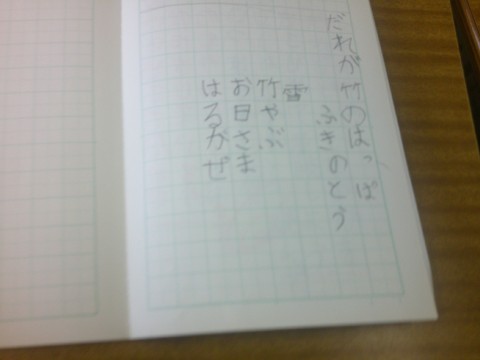 だれが竹のはっぱ
ふきのとう
雪
竹やぶ
お日さま
はるかぜ